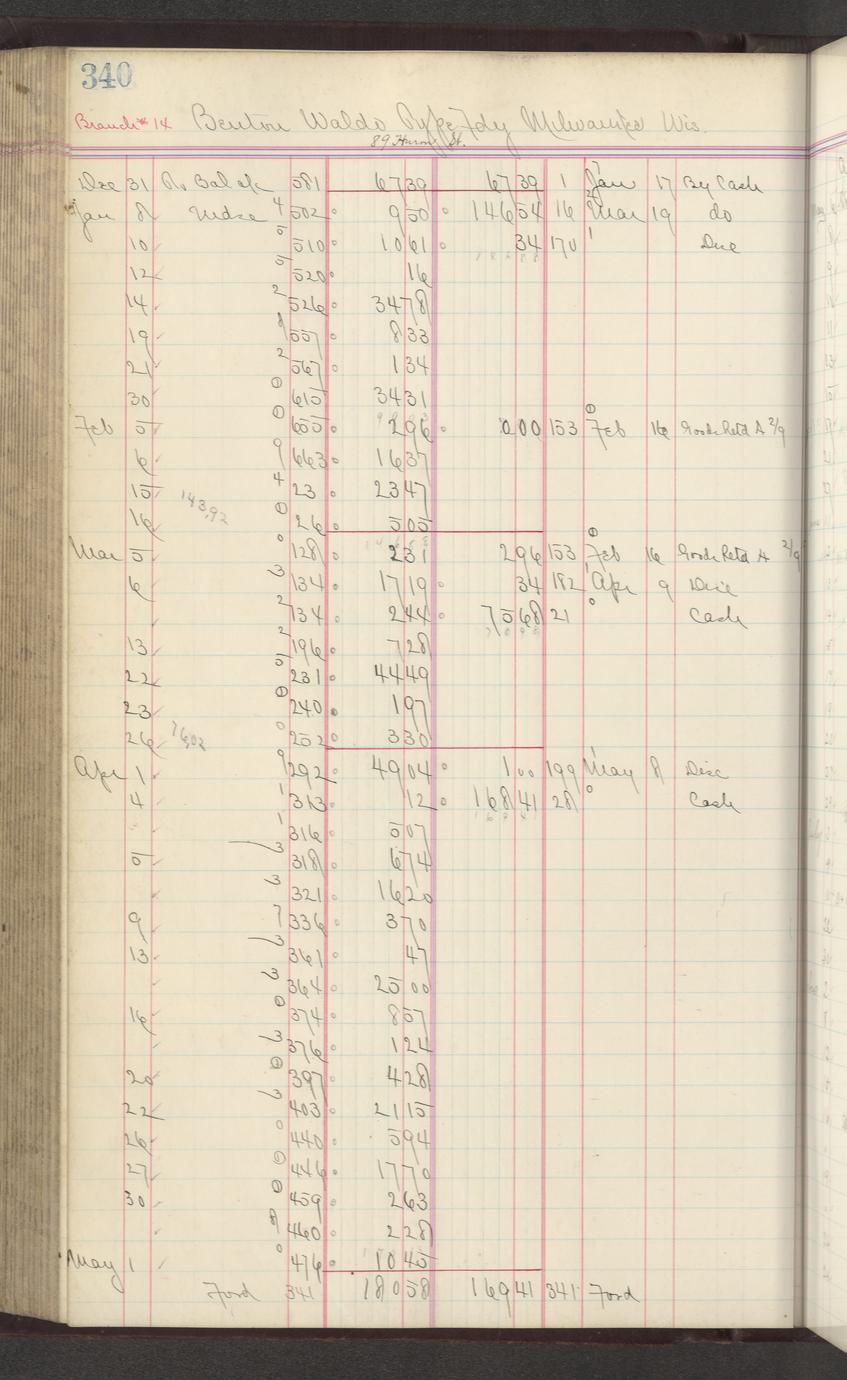 340
Branch # 14 Benton Waldo Type Fdy Milwaukee Wis.
89 Huron St.
Dec 31 To Bal 581 67 39 67 39 1 Jan 17 By Cash
Jan 8 Mdse 4 502 9 50 146 54 16 Mar 19 do
10 5 510 10 61 34 170 1 Disc
12 5 520 16
14 2 526 34 78
19 8 557 8 33
21 2 567 1 34
30 0 615 34 31
Feb 5 0 655 2 96 0 00 153 0 Feb 16 Goods Retd A 2/9
6 9 663 16 37
15 4 23 23 47
143,92
16 0 26 5 05
Mar 5 0 128 2 31 2 96 153 0 Feb 16 Goods Retd A 2/9
6 3 134 17 19 34 182 1 Apr 9 Disc
2 134 2 44 75 68 21 0 Cash
13 2 196 7 28
22 5 231 44 49
23 0 240 1 97
26 76,02 0 252 3 30
Apr 1 9 292 49 04 1 00 199 1 May 8 Disc
4 1 313 12 168 41 28 0 Cash
1 316 5 07
5 3 318 6 74
3 321 16 20
9 7 336 3 70
13 3 361 47
3 364 25 00
16 0 374 8 57
3 376 1 24
20 0 397 4 28
22 3 403 21 15
26 0 440 5 94
27 0 446 17 70
30 0 459 2 63
8 460 2 28
May 1 0 476 10 45
Ford 341 180 58 169 41 341 Ford